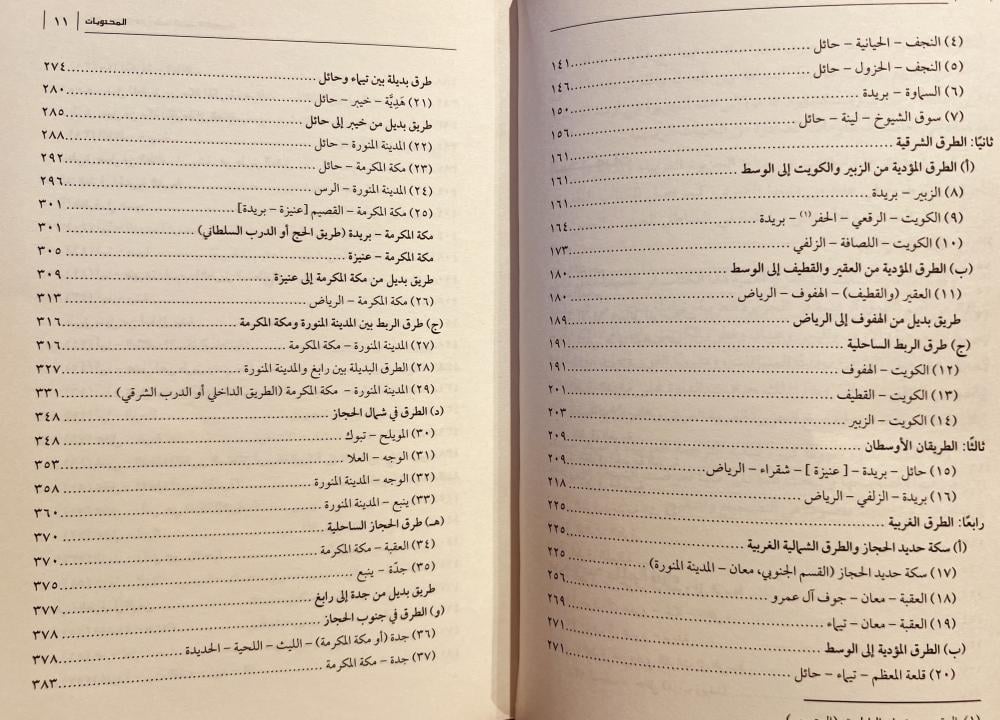 (٤) النجف – الحيانية – حائل ........ ١٤١
(٥) النجف – الخزول – حائل ........ ١٤٦
(٦) السماوة – بريدة ........ ١٥٠
(٧) سوق الشيوخ – لينة – حائل ........ ١٥٦
ثانيًا: الطرق الشرقية ........ ١٦١
(أ) الطرق المؤدية من الزبير والكويت إلى الوسط ........ ١٦١
(٨) الزبير – بريدة ........ ١٦١
(٩) الكويت – الرقعي – الحفر(١) – بريدة ........ ١٦٤
(١٠) الكويت – اللصافة – الزلفي ........ ١٧٣
(ب) الطرق المؤدية من العقير والقطيف إلى الوسط ........ ١٨٠
(١١) العقير (والقطيف) – الهفوف – الرياض ........ ١٨٠
طريق بديل من الهفوف إلى الرياض ........ ١٨٩
(ج) طرق الربط الساحلية ........ ١٩١
(١٢) الكويت – الهفوف ........ ١٩١
(١٣) الكويت – القطيف ........ ٢٠١
(١٤) الكويت – الزبير ........ ٢٠٣
ثالثًا: الطريقان الأوسطان ........ ٢٠٩
(١٥) حائل – بريدة – [ عنيزة ] – شقراء – الرياض ........ ٢٠٩
(١٦) بريدة – الزلفي – الرياض ........ ٢١٨
رابعًا: الطرق الغربية ........ ٢٢٥
(أ) سكة حديد الحجاز والطرق الشمالية الغربية ........ ٢٢٥
(١٧) سكة حديد الحجاز (القسم الجنوبي، معان – المدينة المنورة) ........ ٢٢٥
(١٨) العقبة – معان – جوف آل عمرو ........ ٢٥٦
(١٩) العقبة – معان – تيماء ........ ٢٦٩
(ب) الطرق المؤدية إلى الوسط ........ ٢٧١
(٢٠) قلعة المعظم – تيماء – حائل ........ ٢٧١
المحتويات | ١١ |
طرق بديلة بين تيماء وحائل ........ ٢٧٤
(٢١) هَدِيَّة – خيبر – حائل ........ ٢٨٠
طريق بديل من خيبر إلى حائل ........ ٢٨٥
(٢٢) المدينة المنورة – حائل ........ ٢٨٨
(٢٣) مكة المكرمة – حائل ........ ٢٩٢
(٢٤) المدينة المنورة – الرس ........ ٢٩٦
(٢٥) مكة المكرمة – القصيم [عنيزة – بريدة] ........ ٣٠١
مكة المكرمة – بريدة (طريق الحج أو الدرب السلطاني) ........ ٣٠١
مكة المكرمة – عنيزة ........ ٣٠٥
طريق بديل من مكة المكرمة إلى عنيزة ........ ٣٠٩
(٢٦) مكة المكرمة – الرياض ........ ٣١٣
(ج) طرق الربط بين المدينة المنورة ومكة المكرمة ........ ٣١٦
(٢٧) المدينة المنورة – مكة المكرمة ........ ٣١٦
(٢٨) الطرق البديلة بين رابغ والمدينة المنورة ........ ٣٢٧
(٢٩) المدينة المنورة – مكة المكرمة (الطريق الداخلي أو الدرب الشرقي) ........ ٣٣١
(د) الطرق في شمال الحجاز ........ ٣٤٨
(٣٠) المويلح – تبوك ........ ٣٤٨
(٣١) الوجه – العلا ........ ٣٥٣
(٣٢) الوجه – المدينة المنورة ........ ٣٥٨
(٣٣) ينبع – المدينة المنورة ........ ٣٦٠
(هـ) طرق الحجاز الساحلية ........ ٣٧٠
(٣٤) العقبة – مكة المكرمة ........ ٣٧٠
(٣٥) جدّة – ينبع ........ ٣٧٥
طريق بديل من جدة إلى رابغ ........ ٣٧٧
(و) الطرق في جنوب الحجاز ........ ٣٧٨
(٣٦) جدة (أو مكة المكرمة) – الليث – اللحية – الحديدة ........ ٣٧٨
(٣٧) جدة – مكة المكرمة ........ ٣٨٣